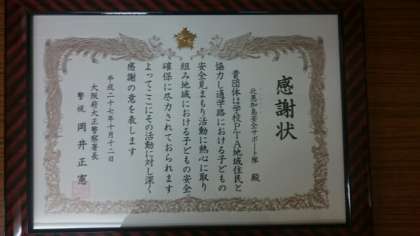 感謝状
北恩加島安全サポート隊 殿
貴団体は学校PTA地域住民と
協力し通学路における子どもの
安全見まもり活動に熱心に取り
組み地域における子どもの安全
確保に尽力されておられます
よってここにその活動に対し深く
感謝の意を表します
平成二十七年十月十二日
大阪府大正警察署長
警視 岡井正憲